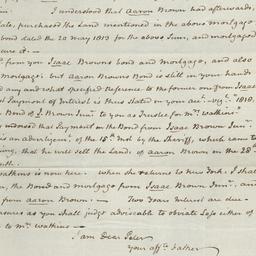 I understood that Aaron Brown had afterwards,
Sale, purchased the Land mentioned in the above mortgage
bond dated the 20 May 1813 for the above Sum, and mortgaged
cure it. —
from you Isaac Browns bond and mortgage, and also
Mortgage; but Aaron Browns Bond is still in your hands
any and what specified Reference to the former one from Isaac
Payment of Interest is thus Stated in your 1818,
Bond of I. Brown Junr. to you as Trustee for Mr. Watkins
indorsed that Payment on the Bond from Isaac Brown Junr.
is an adver of the 15th by the Sheriff, which came to
ing, that he will Sell the Land of Aaron Brown on the 28th
nth.
Watkins is now here. When she returns to New York I shall
, the Bond and mortgage from Isaac Brown Junr. and
from Aaron Brown. — Two Years Interest are due.
asures as you shall judge adviseable to obviate Loss either of
to Mrs. Watkins —
I am Dear Peter
your affte. Father